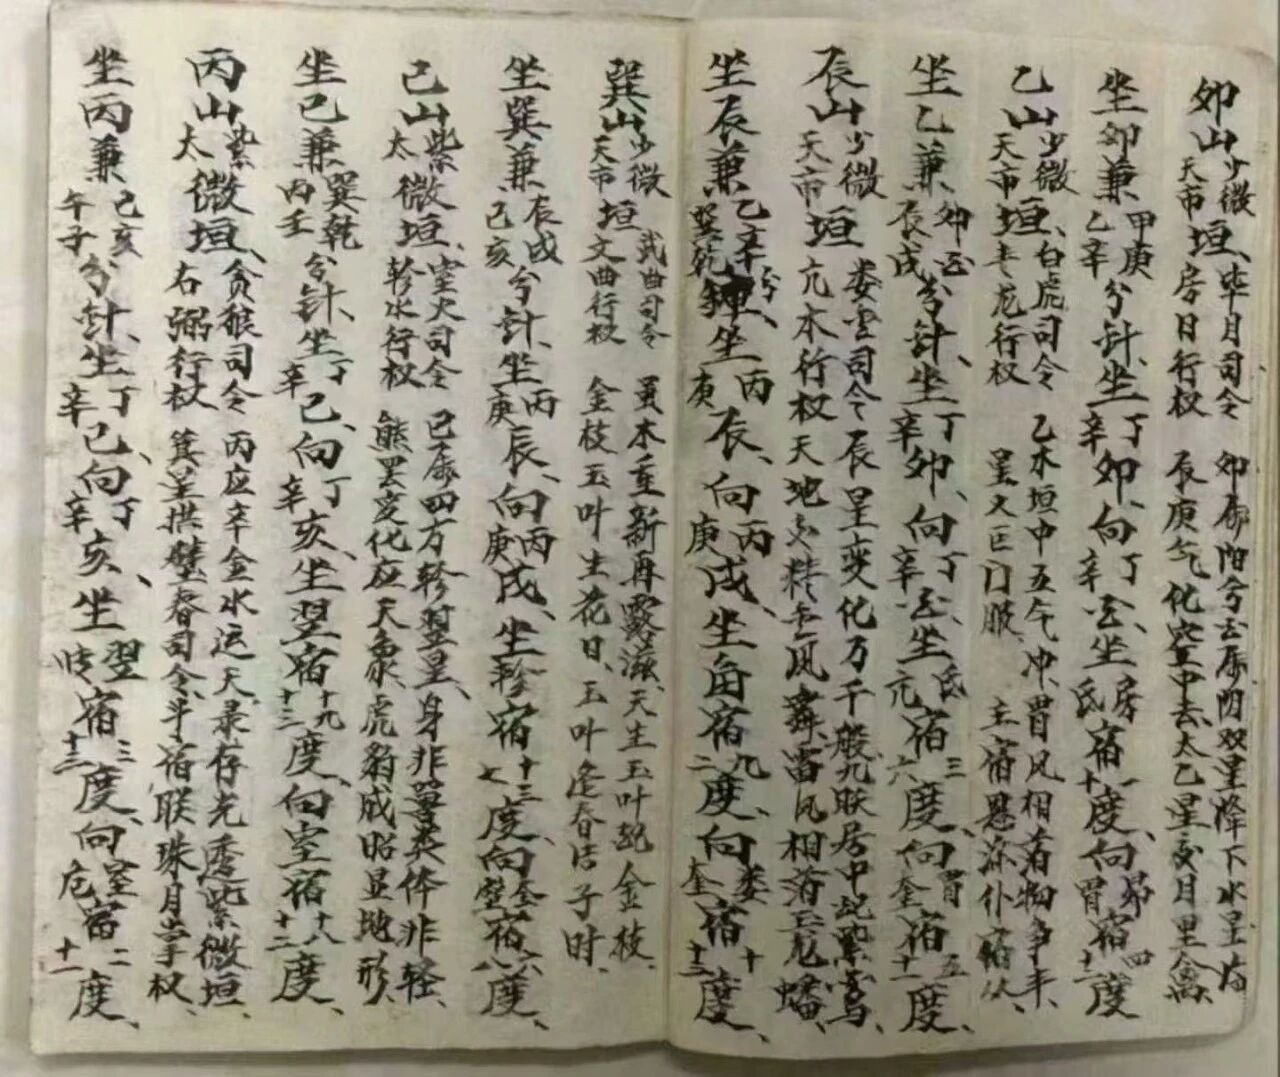 卯山少微天市垣、毕月司令房日行权 卯属阳兮酉属阴双星降下水星
辰庚气化空中去太乙星交月里禽
坐卯兼甲庚乙辛分针、坐丁辛卯、向丁辛酉、坐房氐宿一十度、向昴胃宿四十二度
乙山少微天市垣、白虎司令青龙行权 乙木垣中五气冲、胃风相有
星文巨门 主宿
坐乙兼卯酉辰戌分针、坐丁辛卯、向丁辛酉、坐氐亢宿三六度、向胃奎宿五十一度、
辰山少微天市垣 娄金司令亢木行权 辰星变化万千般九
天地交精 风舞、雷风相
坐辰兼乙辛巽乾分针、坐丙庚辰、向丙庚戌、坐角宿九二度、向娄奎宿十十三度、
巽山少微天市垣 武曲司令文曲行权 巽木重新再露滋、天生玉叶起金枝、
金枝玉叶生花日、玉叶逢春结子时、
坐巽兼辰戌己亥分针、坐丙庚辰、向丙庚戌、坐轸宿十三七度、向奎壁宿六八度、
己山紫太微垣、室火司令轸水行权 己属四方轸翌星、身非 体非轻、
熊罢变化应天象、虎豹成昭显地形、
坐己兼巽乾丙壬分针、坐丁辛己、向丁辛亥、坐翌宿十九十三度、向室宿十八十二度、
丙山紫太微垣、贪狼司令右弼行权 丙应辛金水运天、录存光透紫微垣、
箕星拱 春司令、斗宿联珠月掌权、
坐丙兼己亥午子分针、坐丁辛己、向丁辛亥、坐翌 宿三十三度、向室危宿二十一度、